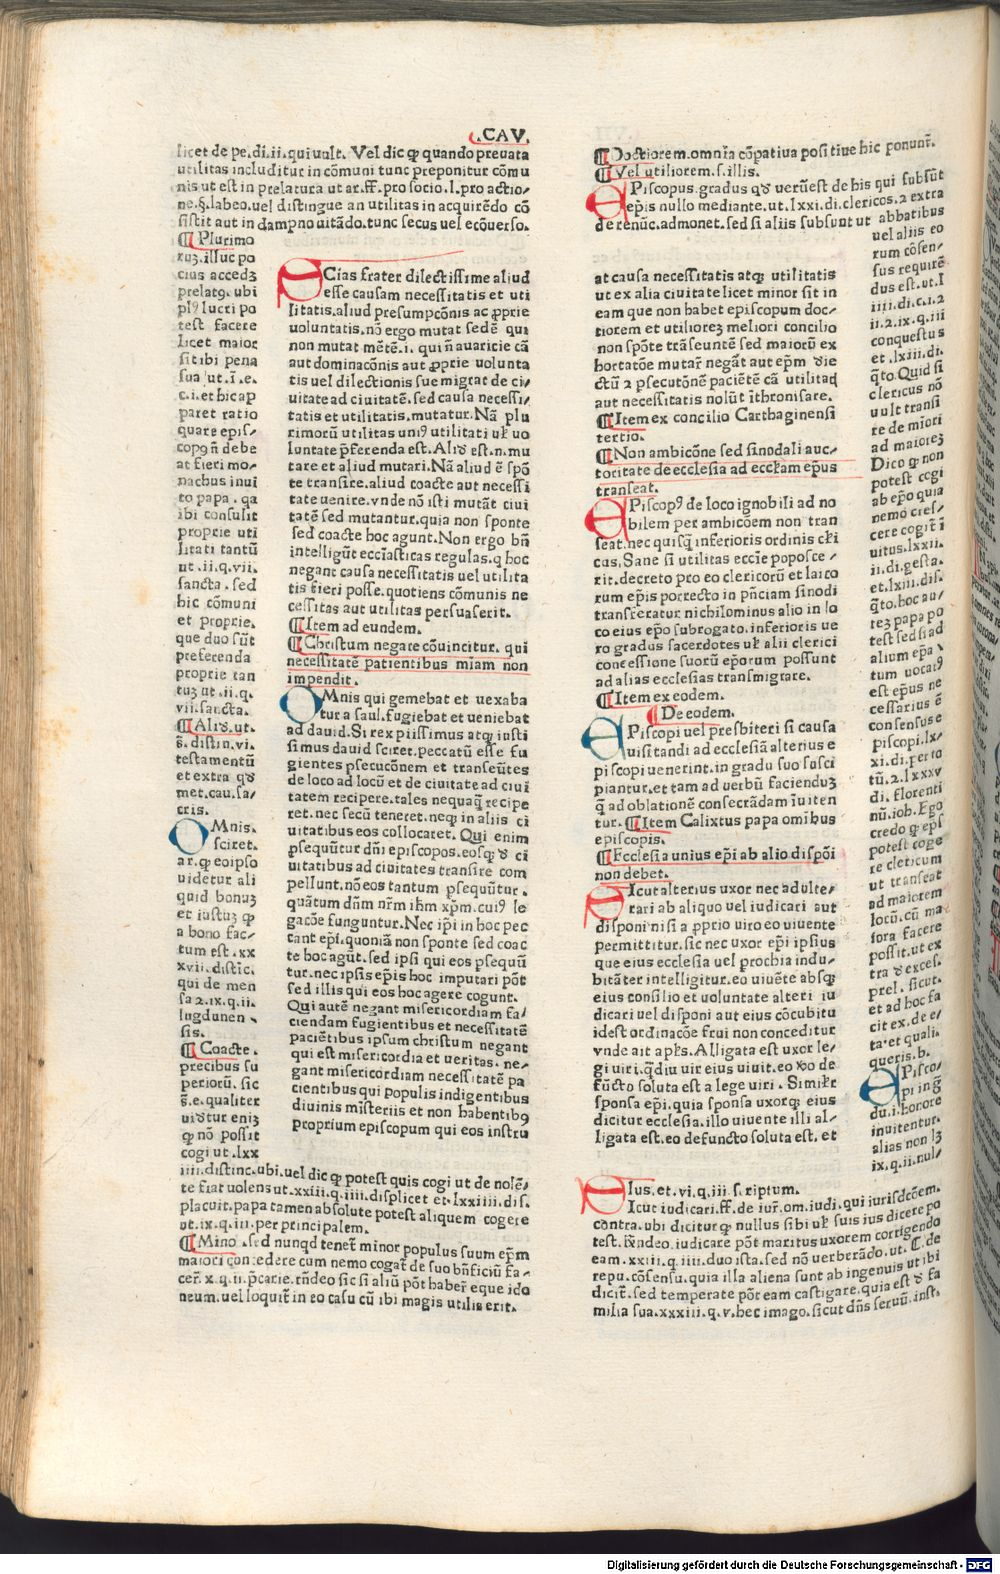 .CAV.
licet de pe.di.ii.qui uult. Vel dic ꝙ quando preuata
utilitas includitur in cōmuni tunc preponitur cōmu
nis ut est in prelatura ut ar.ff.pro socio.l.pro actio/
ne.§.labeo.uel distingue an utilitas in acquirēdo cō
sistit aut in dampno uitādo.tunc secus uel ecōuerso.
¶ Plurimo
ruꝫ.illuc po
cius accedꝫ
prelatꝯ.ubi
plꝰ lucri po
test facere
licet maior
sit ibi pena
sua ut.ī.e.
c.i.et hic ap
paret ratio
quare epis/
copꝰ n̄ debe
at fieri mo/
nachus inui
to papa.qa
ibi consulit
proprie uti
litati tantū
ut.ii.q.vii.
sancta.sed
hic cōmuni
et proprie.
que duo sūt
preferenda
proprie tan
tuꝫ ut.ii.q.
vii.sancta.
¶ Aliꝺ.ut.
s̄.distin.vi.
testamentū
et extra qꝺ
met.cau.sa/
cris.
OMnis.
sciret.
ar.ꝙ eo ipso
uidetur ali
quid bonuꝫ
et iustuꝫ ꝙ
a bono fac/
tum est.xx
xvii.distic.
qui de men
sa 2.ix.q.ii.
lugdunen
sis.
¶ Coacte.
precibus su
periorū.sic
s̄.e.qualiter
uiꝺtur eniꝫ
ꝙ nō possit
cogi ut.lxx
iiii.distinc.ubi.uel dic ꝙ potest quis cogi ut de nolē/
te fiat uolens ut.xxiii.q.iiii.displicet et.lxxiiii.di.s.
placuit.papa tamen absolute potest aliquem cogere
ut.ix.q.iii.per principalem.
¶ Mino .sed nunqd tenet᷑ minor populus suum ep̄m
maiori concedere cum nemo cogat᷑ de suo bn̄ficiū fa/
cer᷑.x.q.ii.p̄carie.rn̄deo sic si aliū pōt haber᷑ eque ido
neum.uel loquit᷑ in eo casu cū ibi magis utilis erit.
SCias frater dilectissime aliud
esse causam necessitatis et uti
litatis.aliud presumpcōnis ac ꝓprie
uoluntatis.nō ergo mutat sedē qui
non mutat mētē.i. qui n̄ auaricie cā
aut dominacōnis aut ꝓprie uolunta
tis uel dilectionis sue migrat de ci/
uitate ad ciuitatē.sed causa necessi/
tatis et utilitatis.mutatur.Nā plu
rimorū utilitas uniꝰ utilitati uł uo
luntate p̄ferenda est.Aliꝺ est.n.mu
tare et aliud mutari.Nā aliud ē spō
te transire.aliud coacte aut necessi
tate uenire.vnde nō isti mutāt ciui
tatē sed mutantur.quia non sponte
sed coacte hoc agunt.Non ergo bn̄
intelligūt eccīasticas regulas.q hoc
negant causa necessitatis uel utilita
tis fieri posse.quotiens cōmunis ne
cessitas aut utilitas persuaserit.
¶ Item ad eundem.
¶ Christum negare cōuincitur. qui
necessitatē patientibus miam non
impendit.
OMnis qui gemebat et uexaba
tur a saul.fugiebat et ueniebat
ad dauid.Si rex piissimus atqꝫ iusti
simus dauid sciret.peccatū esse fu
gientes psecucōnem et transeūtes
de loco ad locū et de ciuitate ad ciui
tatem recipere.tales nequaq̄ recipe
ret.nec secū teneret.neqꝫ in aliis ci
uitatibus eos collocaret. Qui enim
ꝓsequūtur dn̄i episcopos.eosqꝫ ꝺ ci
uitatibus ad ciuitates transire com
pellunt.nō eos tantum psequūtur.
quātum dn̄m nr̄m ihm xp̄m.cuiꝰ le
gacōe funguntur.Nec ip̄i in hoc pec
cant ep̄i.quoniā non sponte sed coac
te hoc agūt.sed ipsi qui eos psequū
tur.nec ipsis ep̄is hoc imputari pōt
sed illis qui eos hoc agere cogunt.
Qui autē negant misericordiam fa/
ciendam fugientibus et necessitatē
pacientibus ipsum christum negant
qui est misericordia et ueritas. ne/
gant misericordiam necessitatē pa
cientibus qui populis indigentibus
diuinis misteriis et non habentibꝯ
proprium episcopum qui eos instru
¶ Doctiorem.omnia cōpatiua positiue hic ponunt᷑.
¶ Vel utiliorem.s.illis.
EPiscopus.gradus qꝺ uerū est de his qui subsūt
ep̄is nullo mediante.ut.lxxi.di.clericos.2 extra
de renūc.admonet.sed si aliis subsunt ut abbatibus
uel aliis eo
rum cōsen/
sus requirē
dus est.ut.l
iiii.di.c.i.2
ii.2.ix.q.iii
conquestus
et.lxiii.di.
q̄to.Quid si
clericus nō
uult transi
re de mīori
ad maiorez
Dico ꝙ non
potest cogi
ab ep̄o quia
nemo cres/
cere cogit᷑ ī
uitus.lxxii.
ii.di.gesta.
et.lxiii.dis.
q̄to.hoc au/
teꝫ papa po
test sed si ad
alium ep̄a
tum uocatꝰ
est ep̄us ne
cessarius ē
consensus e
piscopi.lx/
xi.di.perto
tū.2.lxxxv
di.florenti
nū.iob.Ego
credo ꝙ ep̄s
potest coge
re clericum
ut transeat
ad maiorem
locū.cū ma/
iora facere
possit.ut ex
tra ꝺ exces.
prel. sicut.
et ad hoc fa
cit ex.de e/
ta.et quali.
queris.b.
EPisco/
pi in g
du.i.honore
inuitentur.
alias non lꝫ
ix.q.ii.nul/
at causa necessitatis atqꝫ utilitatis
ut ex alia ciuitate licet minor sit in
eam que non habet episcopum doc/
tiorem et utilioreꝫ meliori concilio
non spōte trāseuntē sed maiorū ex
hortacōe mutar᷑ negāt aut ep̄m ꝺie
ctū 2 psecutōnē paciētē cā utilitaꝗ
aut necessitatis nolūt īthronisare.
¶ Item ex concilio Carthaginensi
tertio.
¶ Non ambicōne sed sinodali auc/
toritate de ecclesia ad eccłam ep̄us
transeat.
EPiscopꝰ de loco ignobili ad no
bilem per ambicōem non tran
seat.nec quisq̄ inferioris ordinis cłi
cus.Sane si utilitas eccīe poposce/
rit.decreto pro eo clericorū et laico
rum ep̄is porrecto in pn̄ciam sinodi
transferatur nichilominus alio in lo
co eius ep̄o subrogato.inferioris ue
ro gradus sacerdotes uł alii clerici
concessione suorū ep̄orum possunt
ad alias ecclesias transmigrare.
¶ Item ex eodem.
¶ De eodem.
EPiscopi uel presbiteri si causa
uisitandi ad ecclesiā alterius e
piscopi uenerint.in gradu suo susci
piantur.et tam ad uerbū facienduꝫ
q̄ ad oblationē consecrādam īuiten
tur. ¶ Item Calixtus papa omibus
episcopis.
¶ Ecclesia unius ep̄i ab alio dispōi
non debet.
SIcut alterius uxor nec adulte/
rari ab aliquo uel iudicari aut
disponi nisi a ꝓprio uiro eo uiuente
permittitur.sic nec uxor ep̄i ipsius
que eius ecclesia uel prochia indu/
bitāter intelligitur.eo uiuēte absqꝫ
eius consilio et uoluntate alteri iu
dicari uel disponi aut eius cōcubitu
idest ordinacōe frui non conceditur
vnde ait ap̄łs.Alligata est uxor le/
gi uiri.q̄diu uir eius uiuit.eo ꝟo de
fūcto soluta est a lege uiri . Similr̄
sponsa ep̄i.quia sponsa uxorqꝫ eius
dicitur ecclesia.illo uiuente illi al/
ligata est.eo defuncto soluta est. et
lus.et.vi.q.iii.scriptum.
SIcut iudicari.ff.de iur᷑.om.iudi.qui iurisdcōem.
contra.ubi diciturqꝫ nullus sibi uł suis ius dicere po
test. R̄ndeo.iudicare pōt maritus uxorem corrigendo
eam.xxiii.q.iiii.duo ista.sed nō uerberādo.ut.C.de
repu.cōsensu.quia illa aliena sunt ab ingenuis ut ibi
dicit᷑.sed temperate pōt eam castigare.quia est ꝺ fa
milia sua.xxxiii.q.v.hec imago.sicut dn̄s seruū.inst.
Digitalisierung gefördert durch die Deutsche Forschungsgemeinschaft - DFG